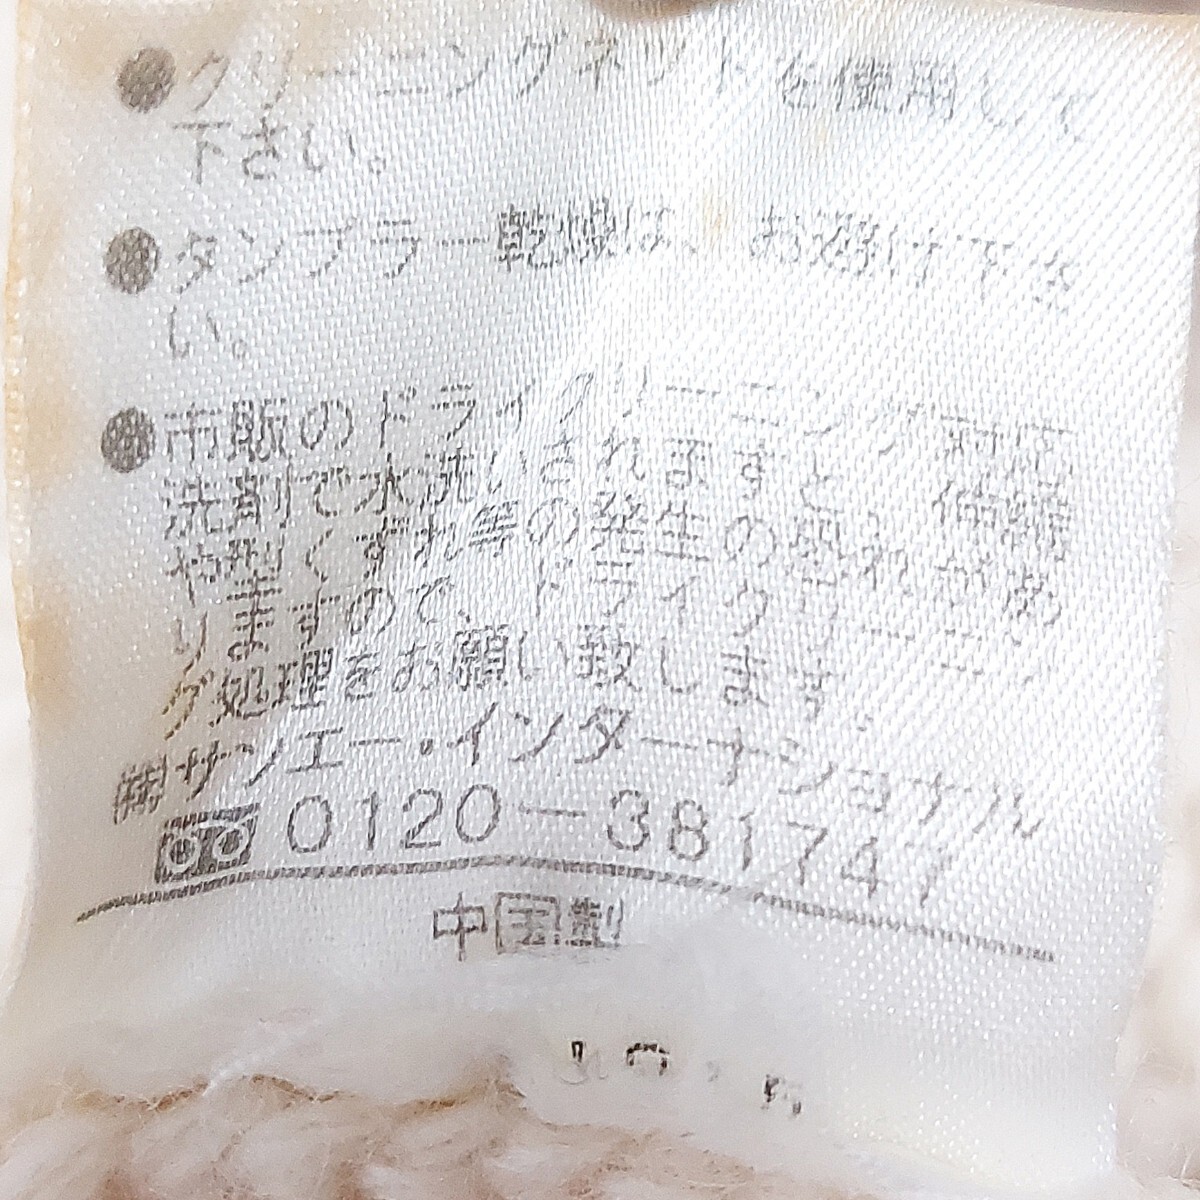 ●クリーニングネットを使用して
下さい。
●タンブラー乾燥は、お避け下さ
い。
●市販のドライクリーニング対応
洗剤で水洗いされますと、伸縮
や型くずれ等の発生の恐れがあ
りますので、ドライクリーニン
グ処理をお願い致します。
㈱サンエー・インターナショナル
0120-381741
中国製